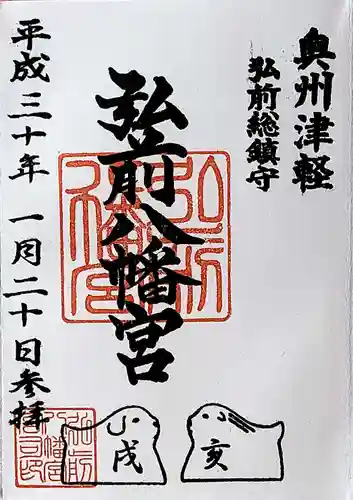 奥州津軽
弘前総鎮守
弘前八幡宮
平成三十年 一月二十日参拝
戌
亥